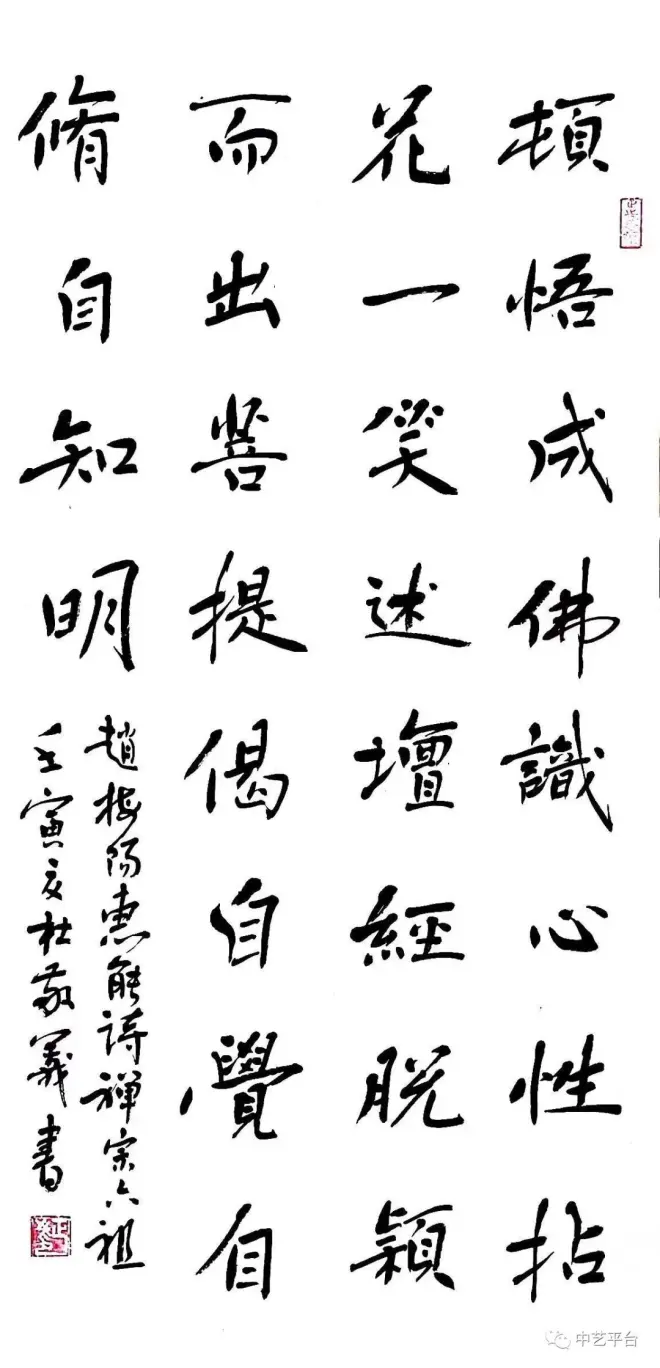 頓悟成佛識心性拈
花一笑述壇經脫穎
而出菩提偈自覺自
脩自知明
趙梅陽惠能詩禪宗六祖
壬寅亥杜敬義書
中艺平台